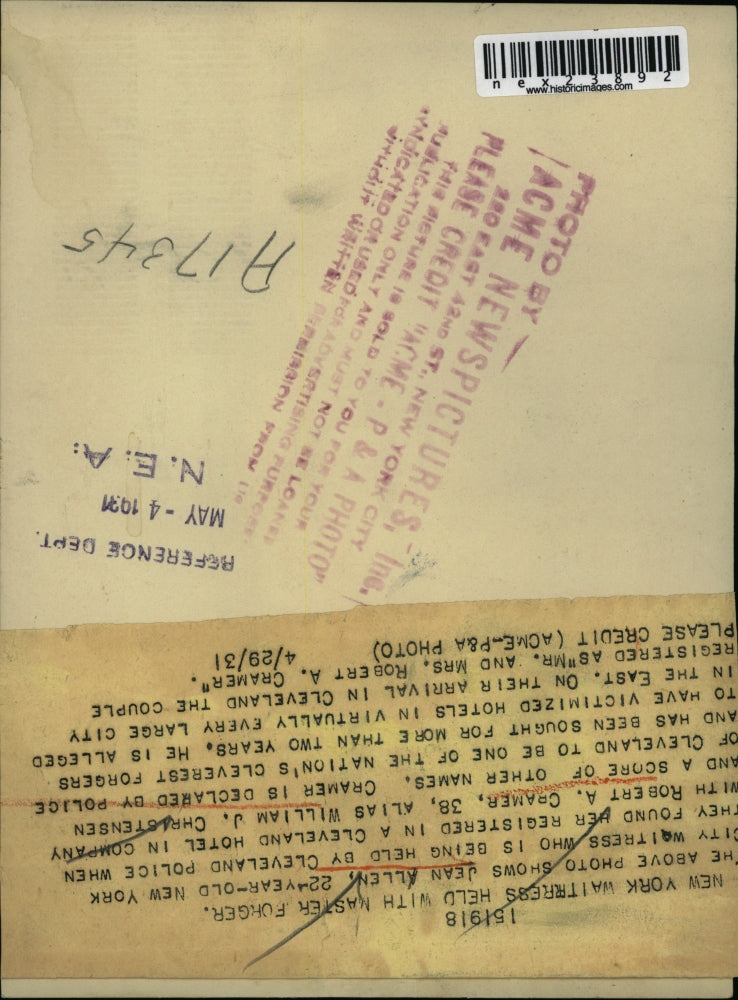 n e x 2 3 8 9 2
www.historicimages.com
PHOTO BY
ACME NEWSPICTURES, Inc.
220 EAST 42ND ST., NEW YORK CITY
PLEASE CREDIT "ACME - P & A PHOTO"
THIS PICTURE IS SOLD TO YOU FOR YOUR
PUBLICATION ONLY AND MUST NOT BE LOANED
SYNDICATED OR USED FOR ADVERTISING PURPOSES
WITHOUT WRITTEN PERMISSION FROM US
A17345
REFERENCE DEPT.
MAY - 4 1931
N. E. A.
151918
NEW YORK WAITRESS HELD WITH MASTER FORGER.
THE ABOVE PHOTO SHOWS JEAN ALLEN, 22-YEAR-OLD NEW YORK
CITY WAITRESS WHO IS BEING HELD BY CLEVELAND POLICE WHEN
THEY FOUND HER REGISTERED IN A CLEVELAND HOTEL IN COMPANY
WITH ROBERT A. CRAMER, 38, ALIAS WILLIAM J. CHRISTENSEN
AND A SCORE OF OTHER NAMES. CRAMER IS DECLARED BY POLICE
OF CLEVELAND TO BE ONE OF THE NATION'S CLEVEREST FORGERS
AND HAS BEEN SOUGHT FOR MORE THAN TWO YEARS. HE IS ALLEGED
TO HAVE VICTIMIZED HOTELS IN VIRTUALLY EVERY LARGE CITY
IN THE EAST. ON THEIR ARRIVAL IN CLEVELAND THE COUPLE
REGISTERED AS "MR. AND MRS. ROBERT A. CRAMER".
PLEASE CREDIT (ACME-P&A PHOTO) 4/29/31